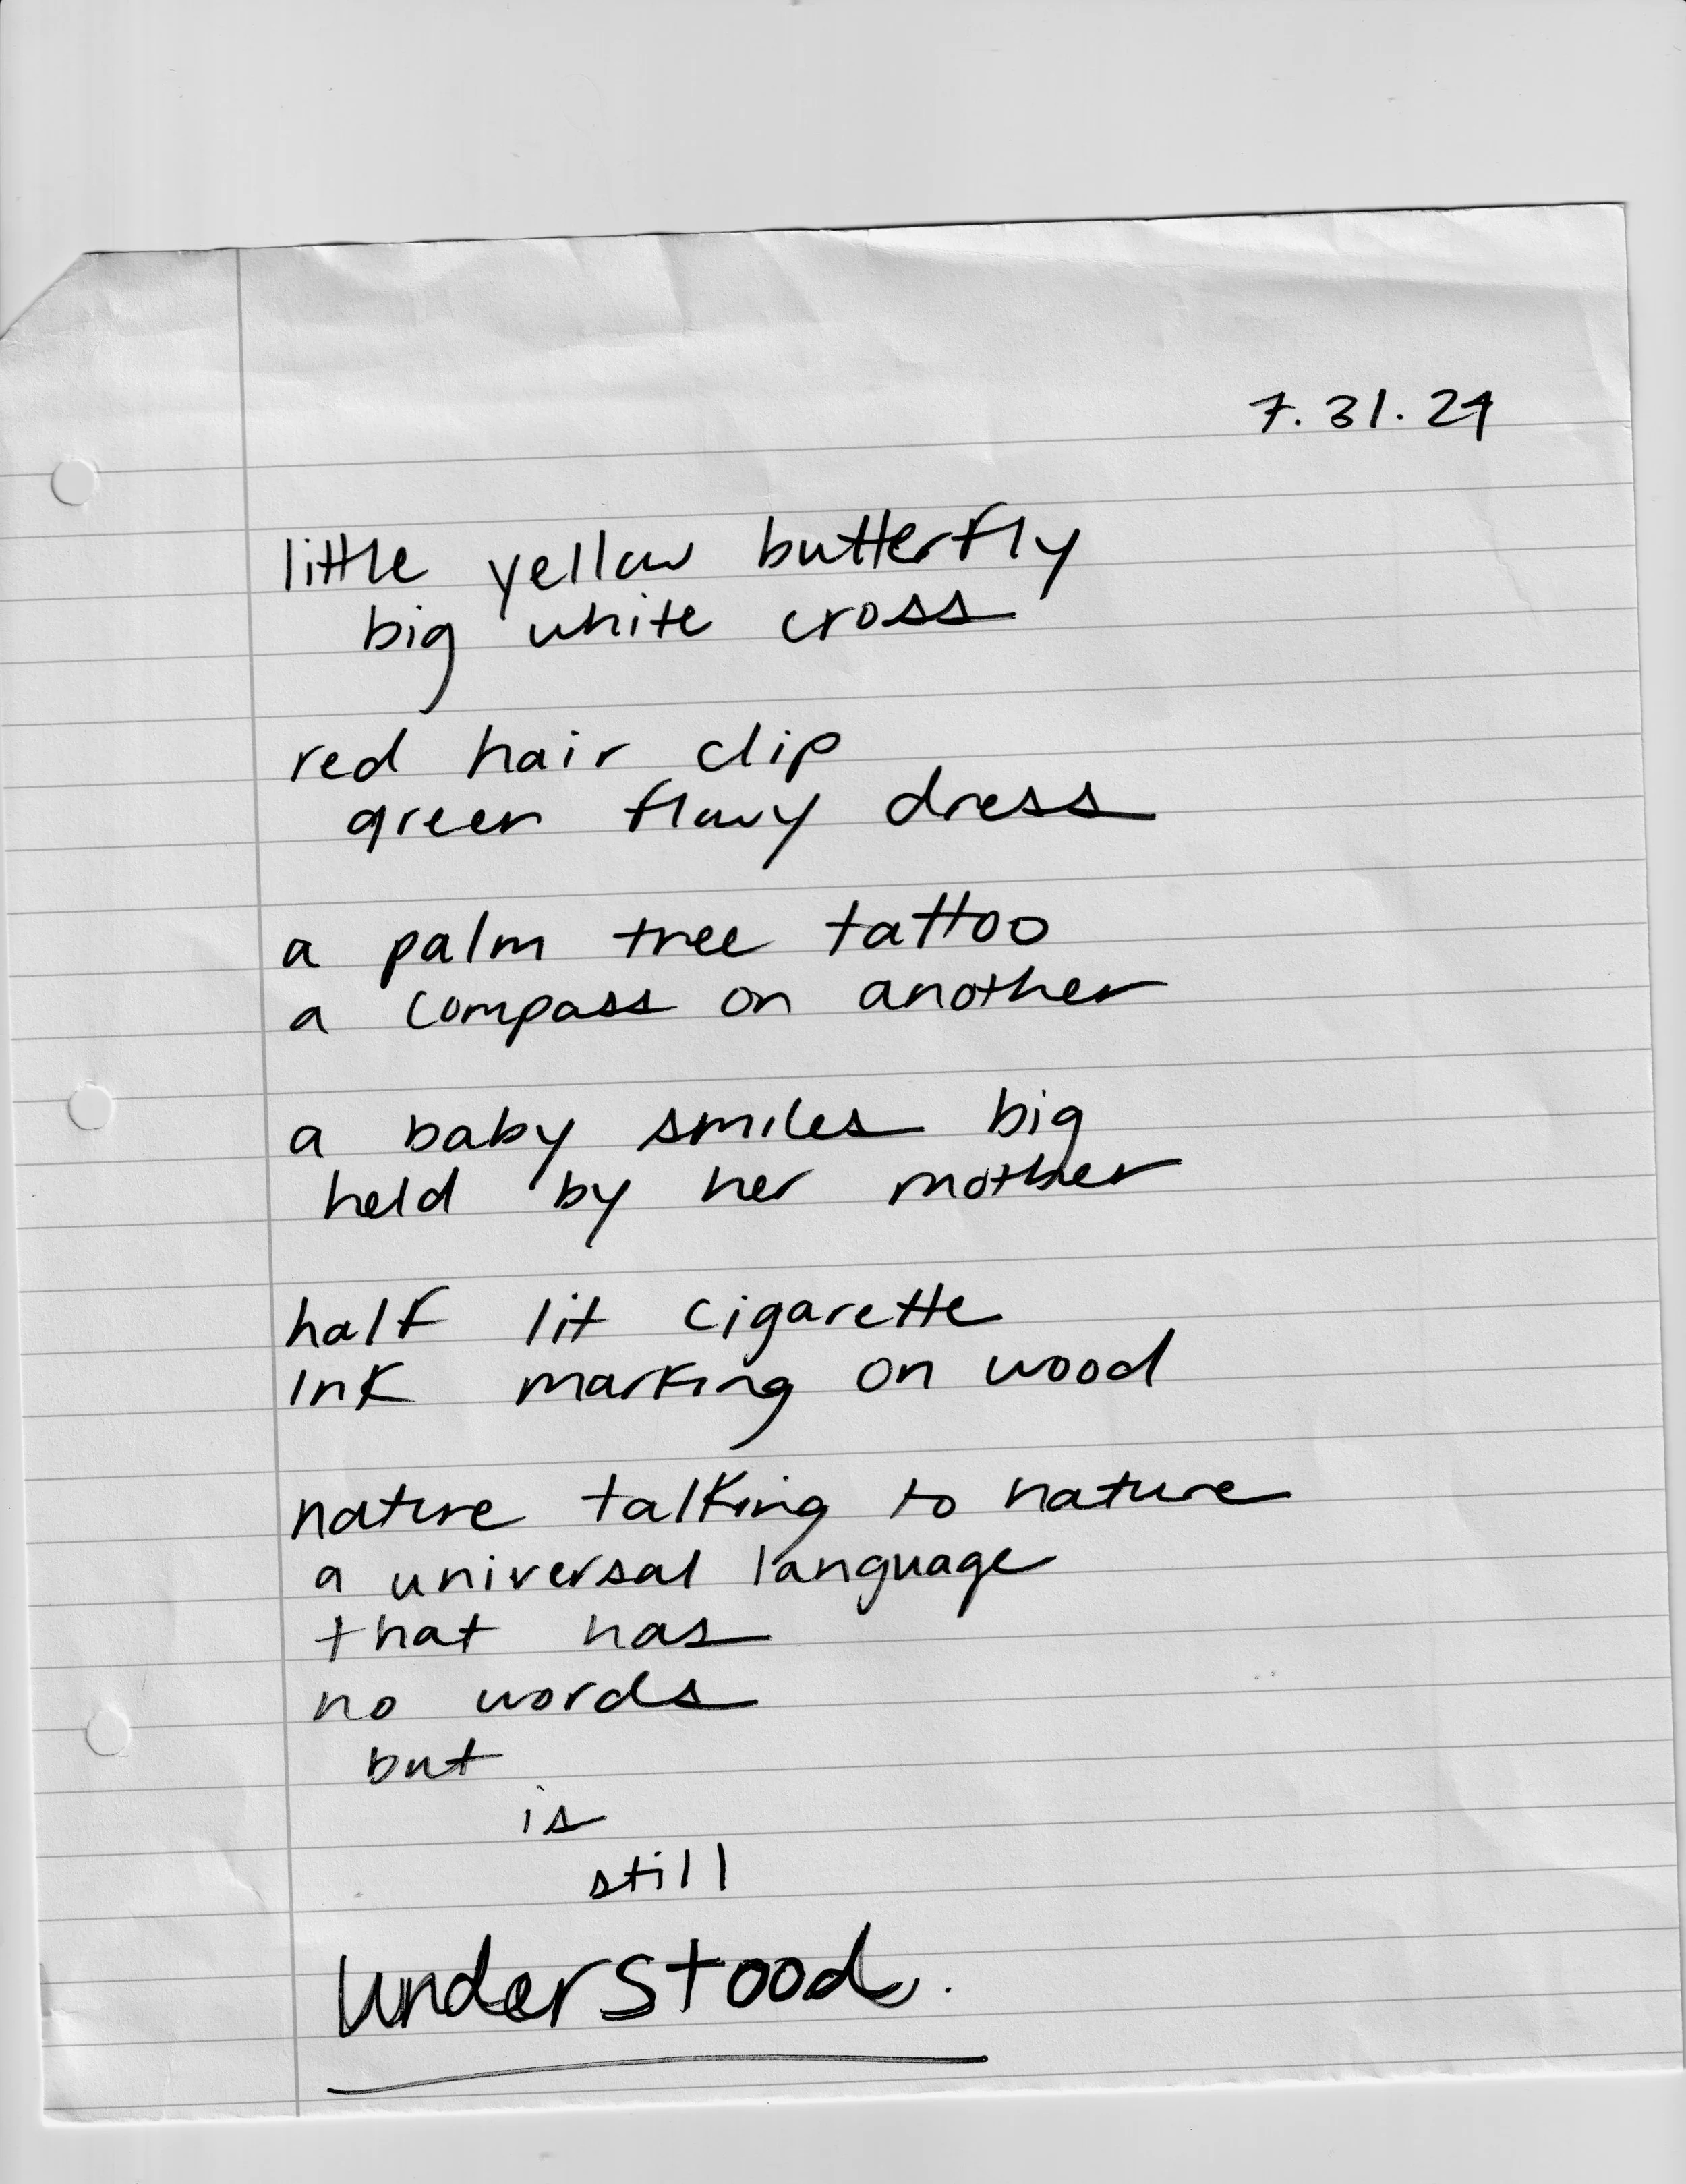 7.31.24
little yellow butterfly
big white cross
red hair clip
green flowy dress
a palm tree tattoo
a compass on another
a baby smiles big
held by her mother
half lit cigarette
ink marking on wood
nature talking to nature
a universal language
that has
no words
but
is
still
understood.